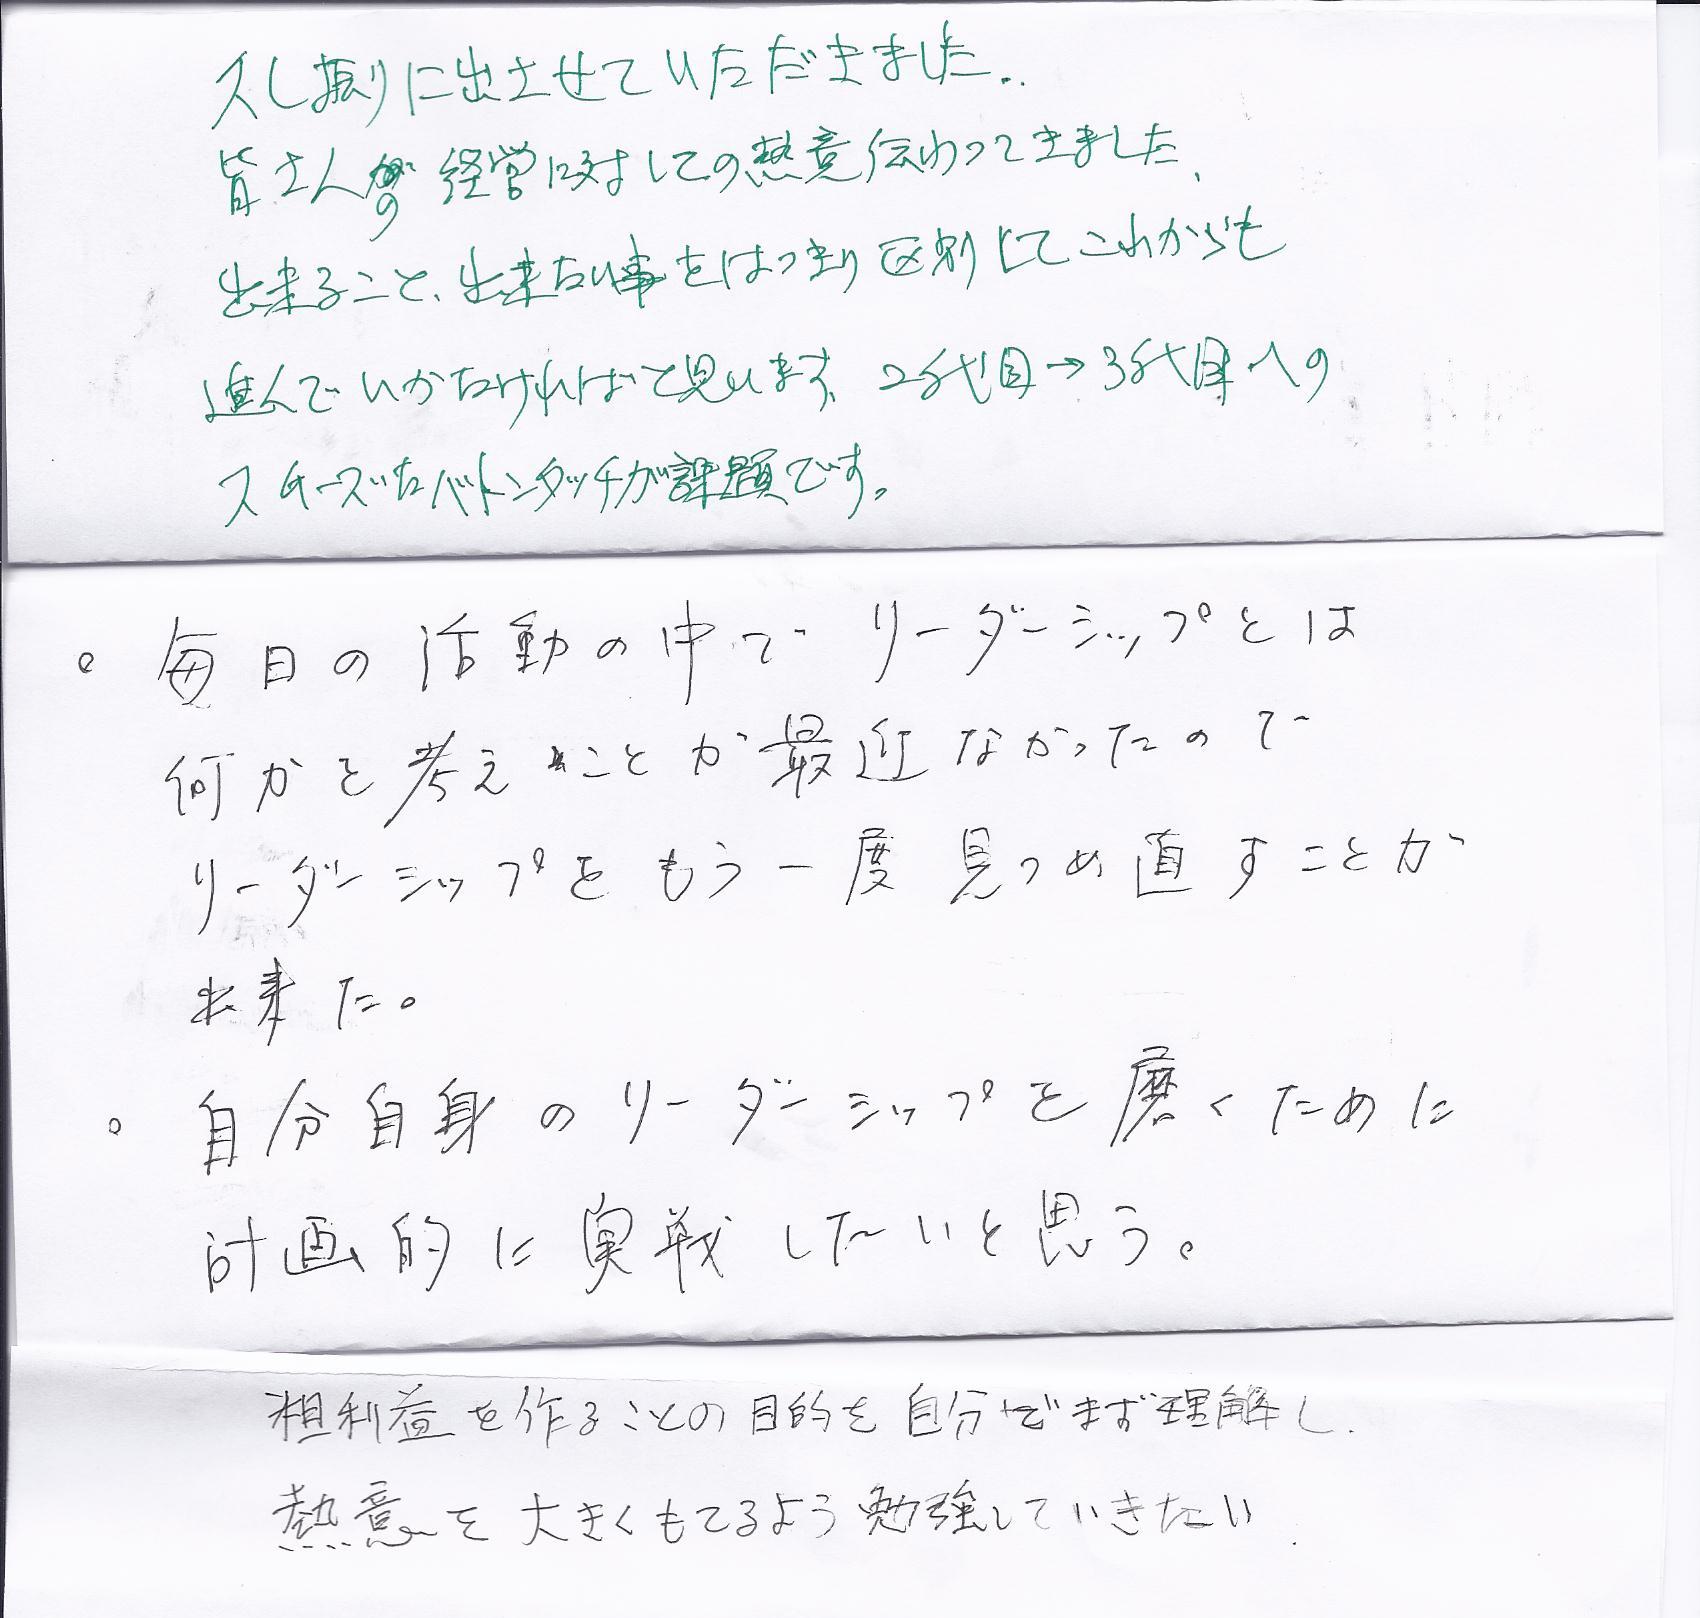 久し振りに出させていただきました。
皆さんの経営に対しての熱意伝わってきました、
出来ること、出来ない事をはっきり区別してこれからも
進んでいかなければと思います、2代目→3代目への
スムーズなバトンタッチが課題です。
。毎日の活動の中で リーダーシップとは
何かを考えることが最近なかったので
リーダーシップをもう一度見つめ直すことが
出来た。
。自分自身のリーダーシップを磨くために
計画的に実戦したいと思う。
粗利益を作ることの目的を自分でまず理解し、
熱意を大きくもてるよう勉強していきたい